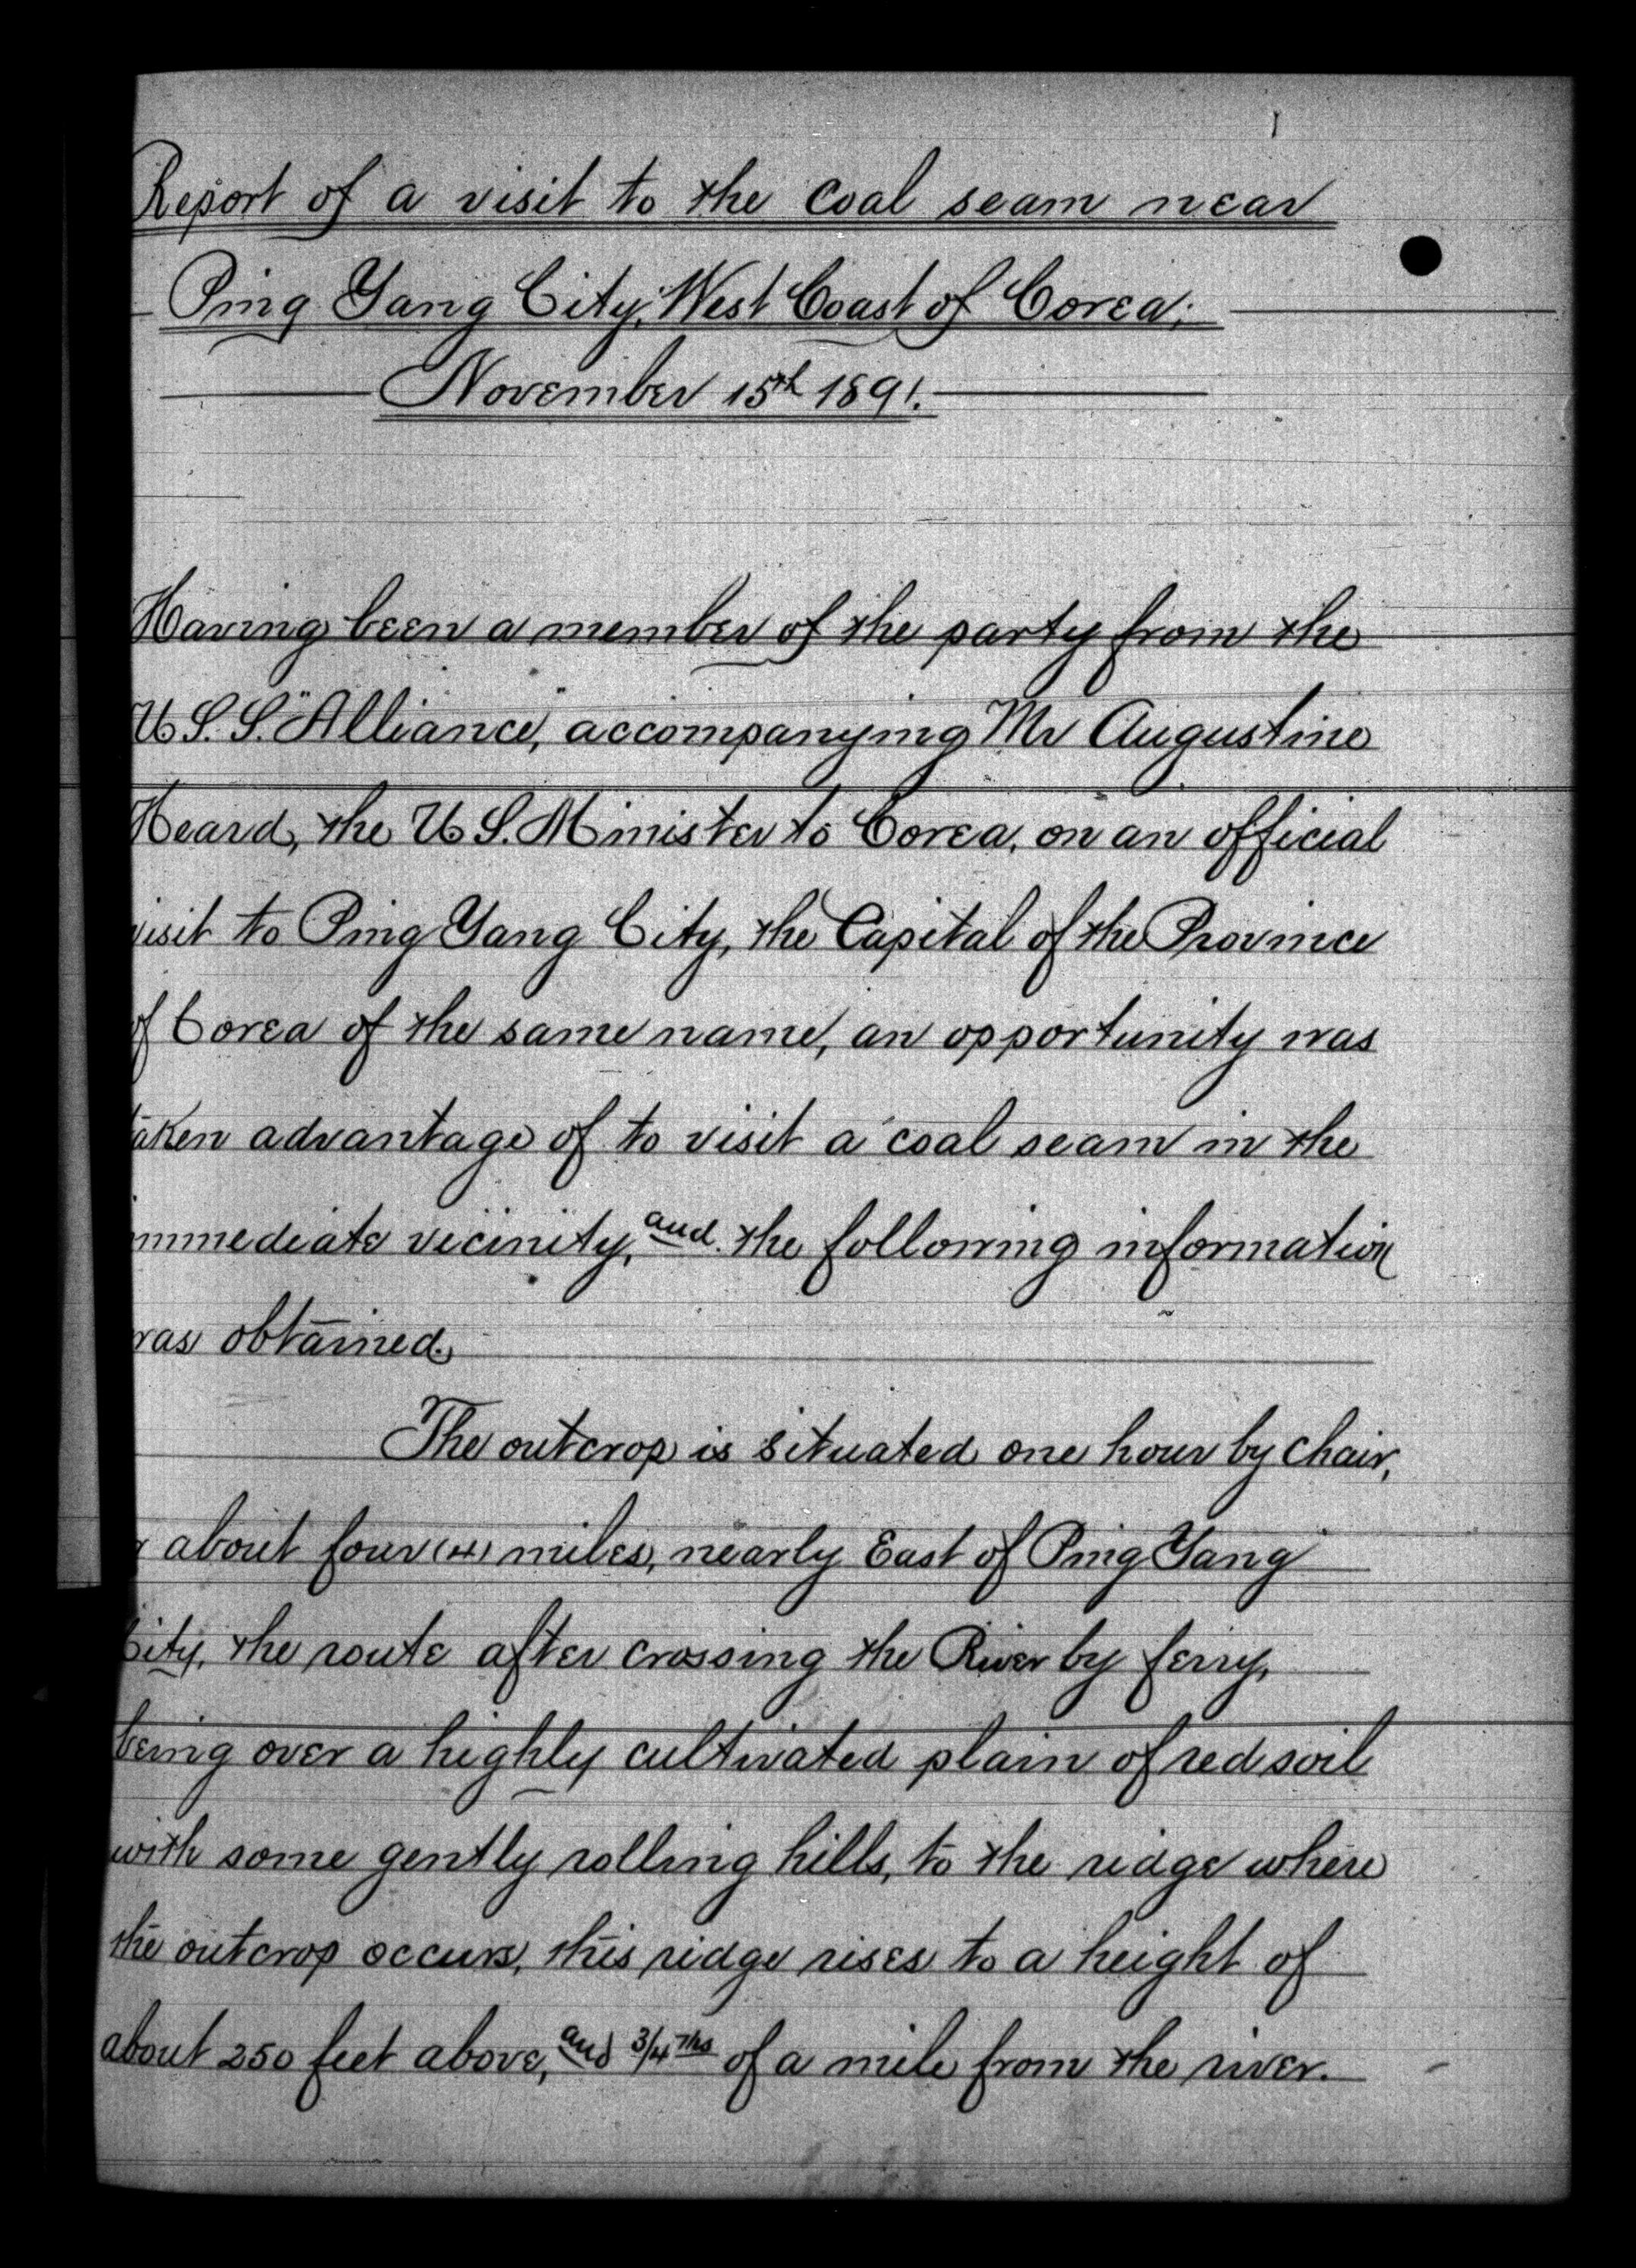 Report of a visit to the coal seam near
Ping Yang City, West Coast of Corea;
November 15th 1891.
Having been a member of the party from the
U.S.S. "Alliance", accompanying Mr Augustine
Heard, the U.S. Minister to Corea, on an official
visit to Ping Yang City, the Capital of the Province
of Corea of the same name, an opportunity was
taken advantage of to visit a coal seam in the
immediate vicinity, and the following information
was obtained.
The outcrop is situated one hour by chair,
about four (4) miles, nearly East of Ping Yang
City, the route after crossing the River by ferry,
being over a highly cultivated plain of red soil
with some gently rolling hills, to the ridge where
the outcrop occurs, this ridge rises to a height of
about 250 feet above, and 3/4ths of a mile from the river.